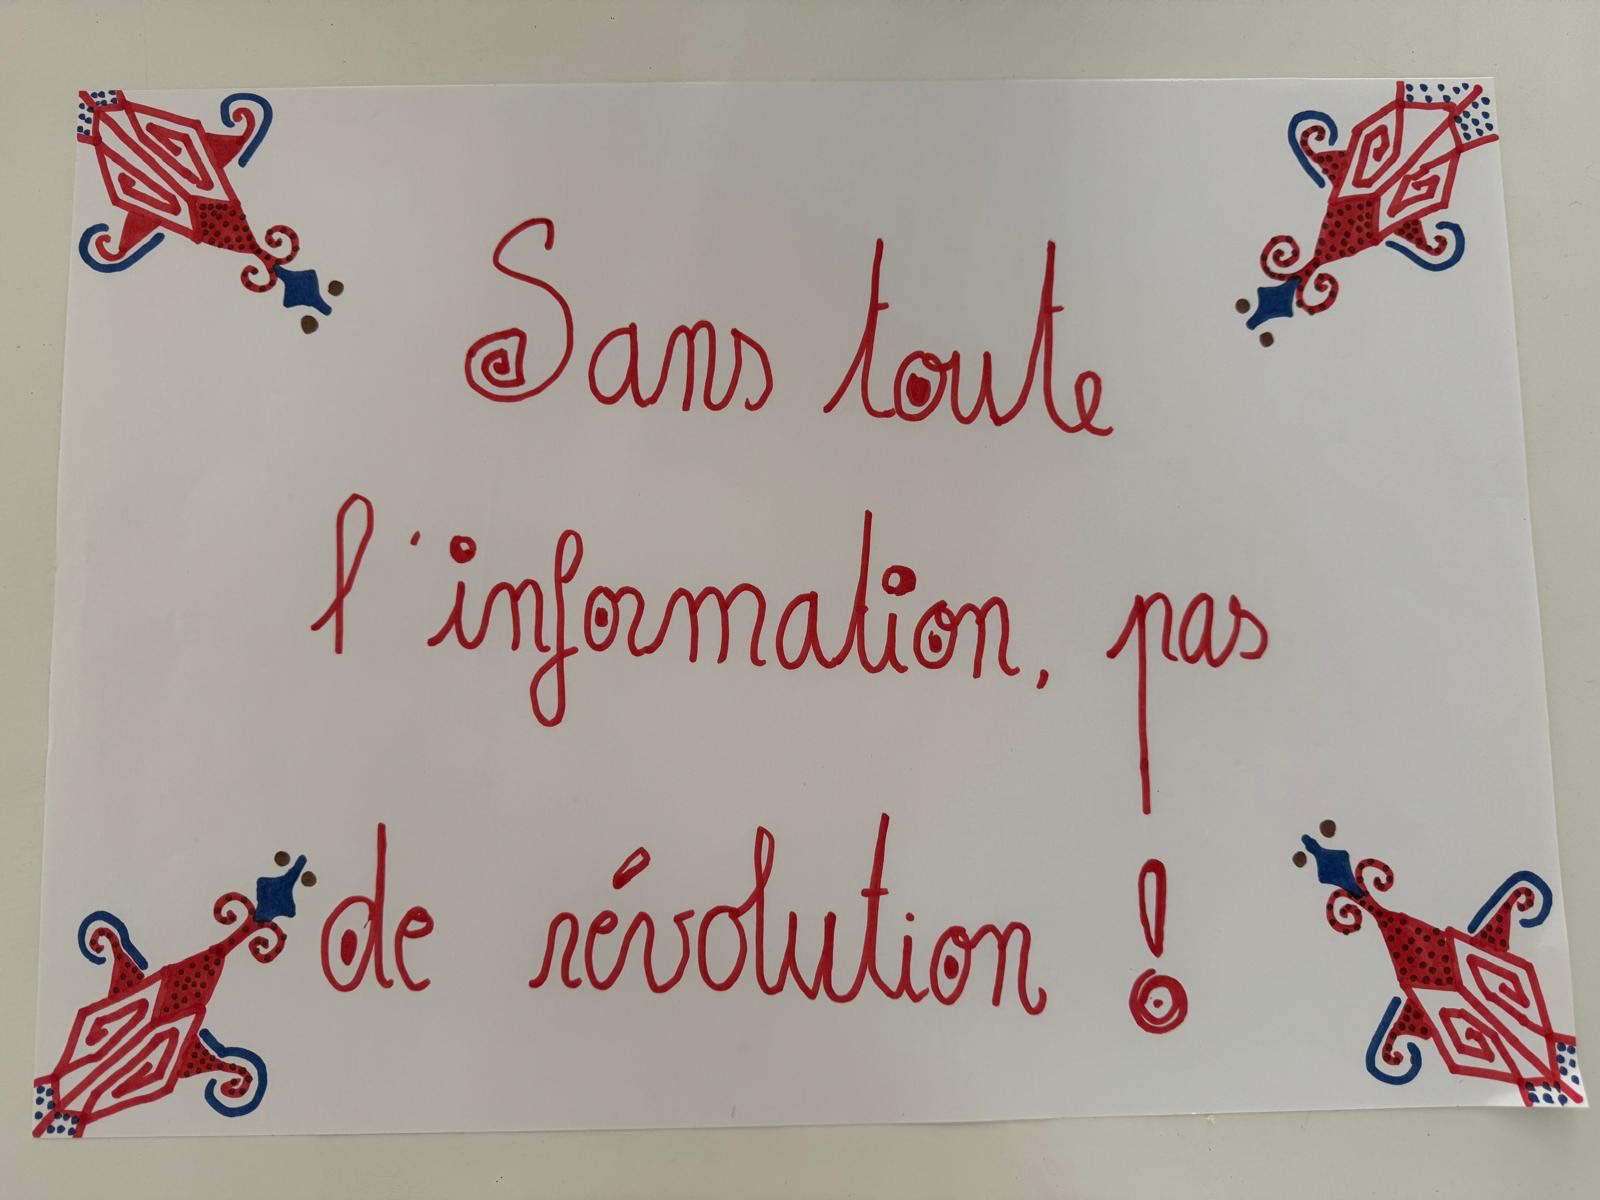 Sans toute
l'information, pas
de révolution !